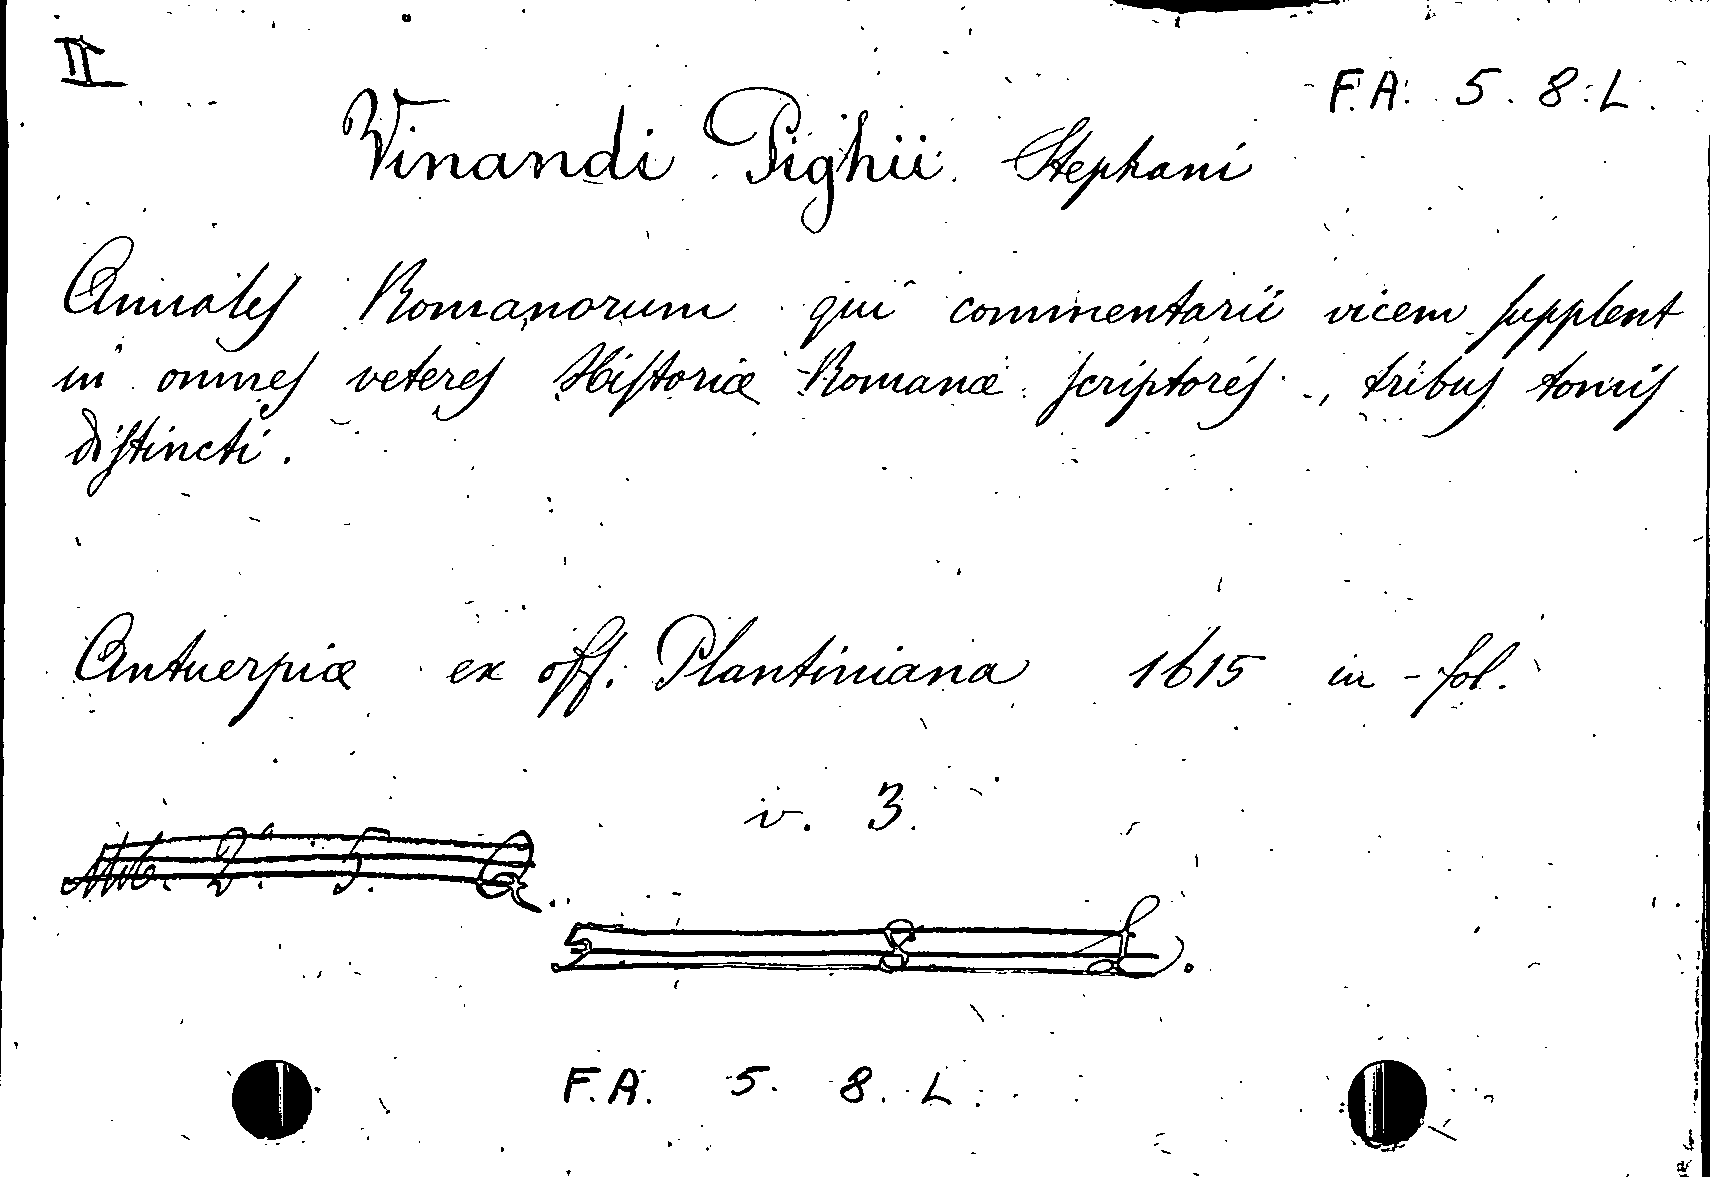 II
F.A. 5. 8. L.
Vinandi Pighii Stephani
Annales Romanorum qui commentarii vicem supplent
in omnes veteres Historiæ Romanæ scriptores, tribus tomis
distincti.
Antuerpiæ ex off. Plantiniana 1615 in-fol.
v. 3.
2ª 5. Q.
5 8 L.
F.A. 5. 8. L.